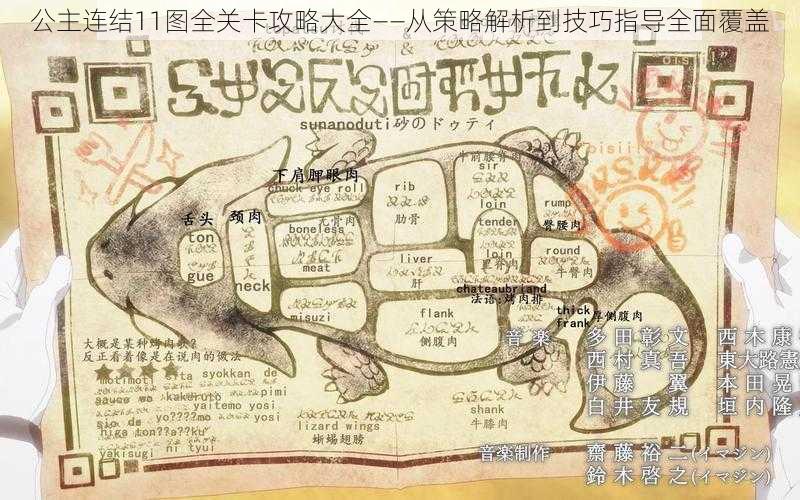 公主连结11图全关卡攻略大全——从策略解析到技巧指导全面覆盖
sunanoduti砂のドゥティ
oisii!?
下肩胛眼肉
chuck eye roll
舌头
ton
gue
颈肉
neck
无骨肉
boneless
meat
misuzi
rib
肋骨
liver
肝
flank
侧腹肉
牛前腰脊肉
sir
loin
tender
loin
里脊肉
chateaubriand
法语:烤肉排
rump
臀腰肉
round
牛臀肉
thick
frank
厚侧腹肉
shank
牛膝肉
lizard wings
蜥蜴翅膀
大概是某种烤肉歌?
反正看着像是在说肉的做法
motimoti sita syokkan de
sauce wo kakuruto
pimi
yaitemo yosi
sio de yo????mo yosi
higa ton??a??ku
yakisugi ni tyui
音楽 多田彰文 西木康
西村真吾 東大路憲
伊藤翼 本田晃
白井友規 垣内隆
音楽制作 齋藤裕二(イマジン)
鈴木啓之(イマジン)